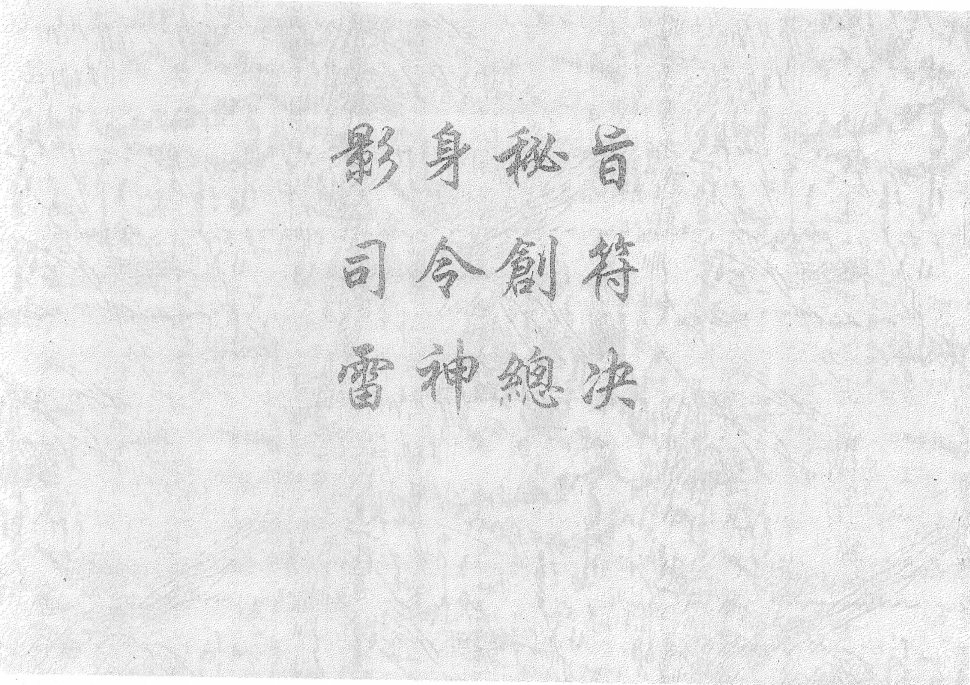 影身秘旨
司令創符
雷神總决